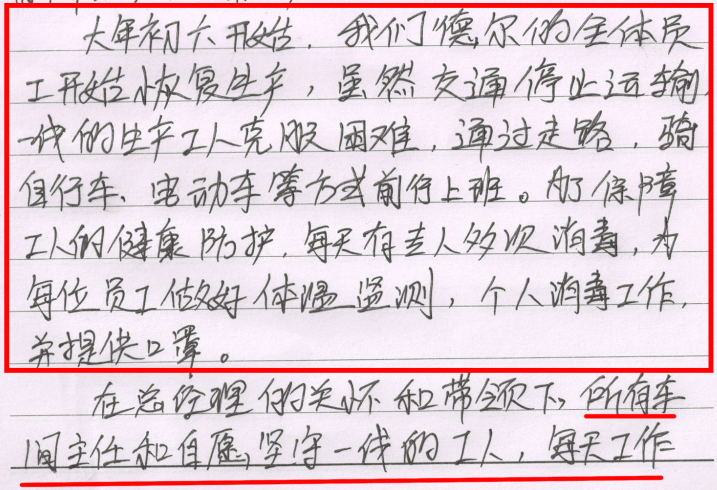 大年初六开始，我们德尔的全体员
工开始恢复生产，虽然交通停止运输，
一线的生产工人克服困难，通过走路，骑
自行车、电动车等方式前行上班。为了保障
工人的健康防护，每天有专人多次消毒，为
每位员工做好体温监测，个人消毒工作，
并提供口罩。
在总经理的关怀和带领下，所有车
间主任和自愿坚守一线的工人，每天工作